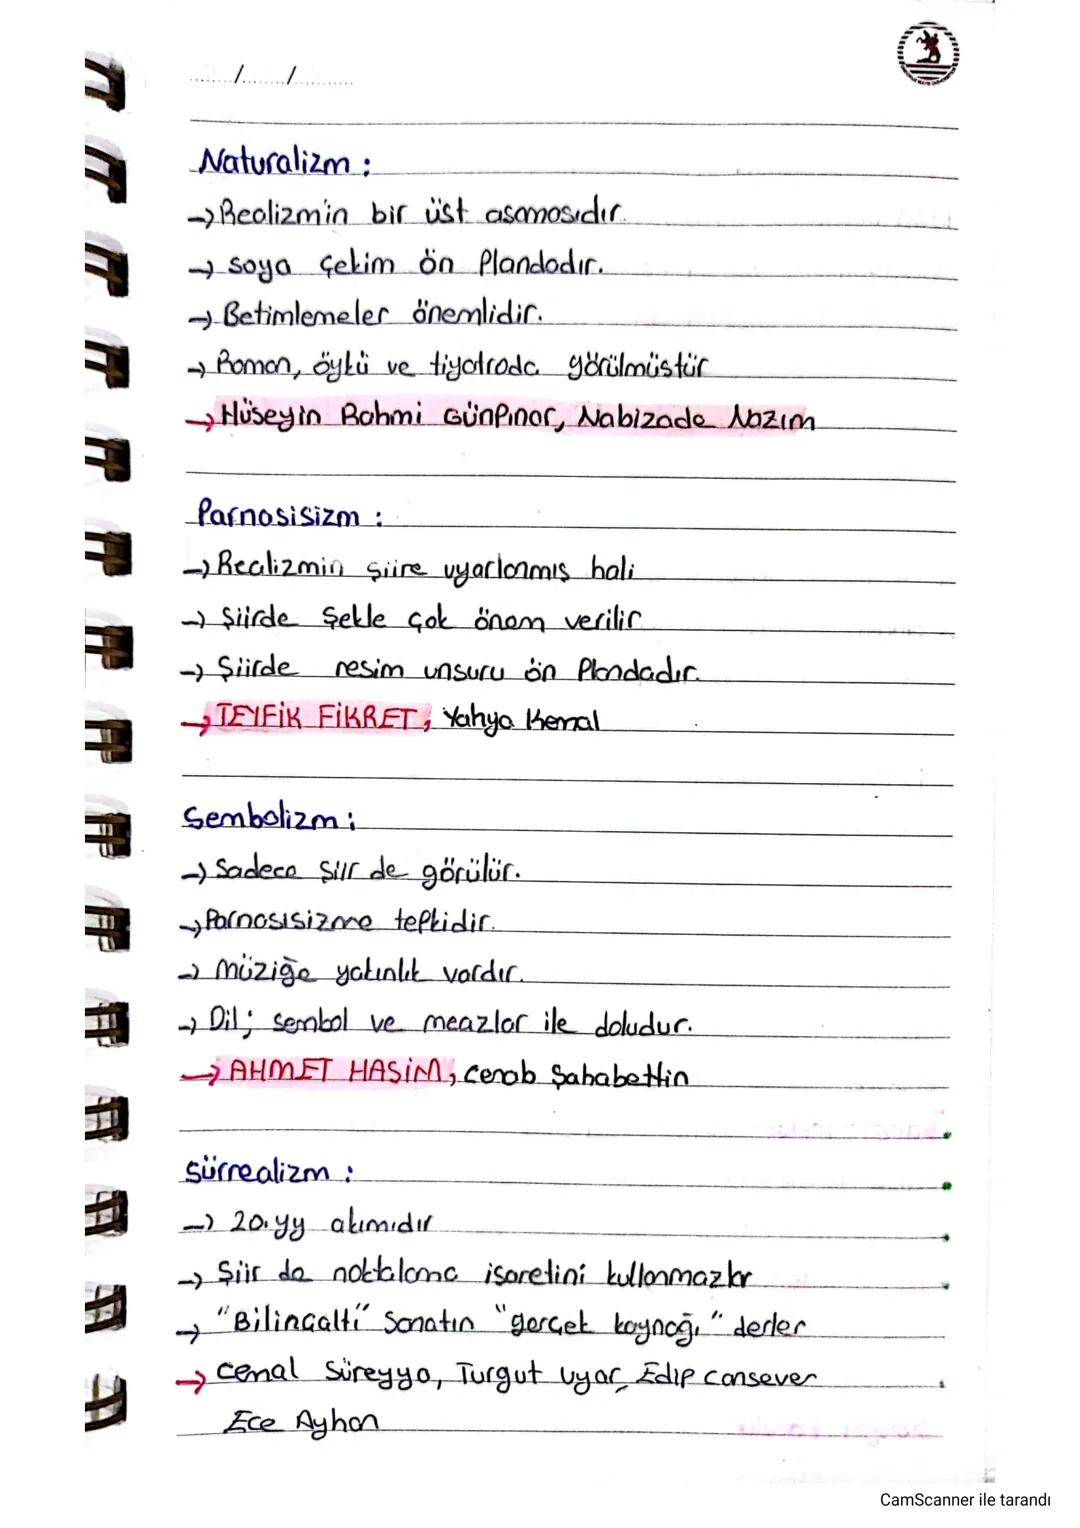 ....../......./...........
Naturalizm :
→ Realizm'in bir üst asamasıdır.
→ soya çekim ön Plandadır.
→ Betimlemeler önemlidir.
→ Roman, öykü ve tiyatroda görülmüstür
→ Hüseyin Rahmi GünPınar, Nabizade Nazım
Parnasisizm :
→ Realizmin şiire uyarlanmış hali
→ Şiirde Şekle çok önem verilir
→ Şiirde resim unsuru ön Plandadır.
→ TEVFİK FİKRET, Yahya Kemal
Sembolizm :
→ Sadece Şiir de görülür.
→ Parnasisizme tepkidir.
→ müziğe yakınlık vardır.
→ Dil; sembol ve meazlar ile doludur.
→ AHMET HASİM, cenab Şahabettin
Sürrealizm :
→ 20.yy akımıdır
→ Şiir de noktalama isaretini kullanmazlar
→ "Bilinçaltı" Sanatın "gerçek kaynağı" derler
→ cemal Süreyya, Turgut uyar, Edip cansever
Ece Ayhan
CamScanner ile tarandı